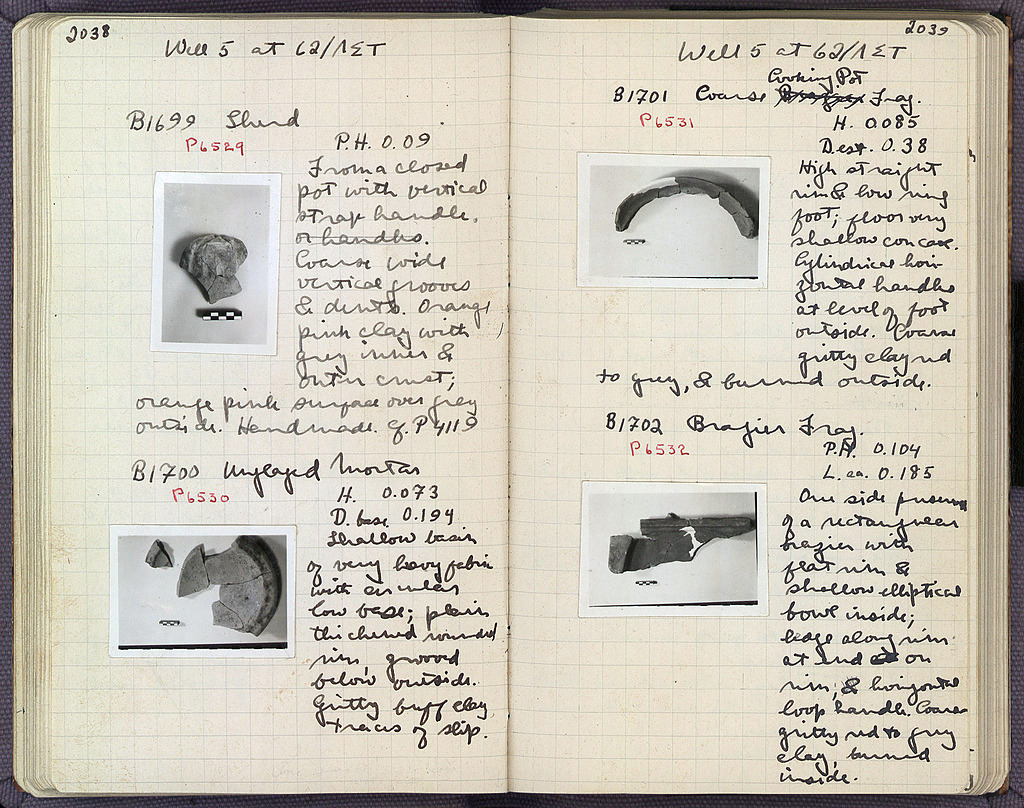 2038
Well 5 at 62/ΛΣΤ
B1699 Sherd
P6529
P.H. 0.09
From a closed
pot with vertical
strap handle,
or handles.
Coarse wide
vertical grooves
& dents. Orange
pink clay with
grey inner &
outer crust;
orange pink surface over grey
outside. Handmade. Cf. P4119
B1700 Unglazed Mortar
P6530
H. 0.073
D. base 0.194
Shallow basin
of very heavy fabric
with circular
low base; plain
thickened rounded
rim, grooved
below outside.
Gritty buff clay
traces of slip.
2039
Well 5 at 62/ΛΣΤ
Cooking Pot
B1701 Coarse Brazier Frag.
P6531
H. 0.085
D. est. 0.38
High straight
rim & low ring
foot; floor very
shallow concave.
Cylindrical hori-
zontal handles
at level of foot
outside. Coarse
gritty clay red
to grey, & burned outside.
B1702 Brazier Frag.
P6532
P.H. 0.104
L. ca. 0.185
One side preserved
of a rectangular
brazier with
flat rim &
shallow elliptical
bowl inside;
ledge along rim
at end on
rim, & horizontal
loop handle. Coarse
gritty red to grey
clay, burned
inside.